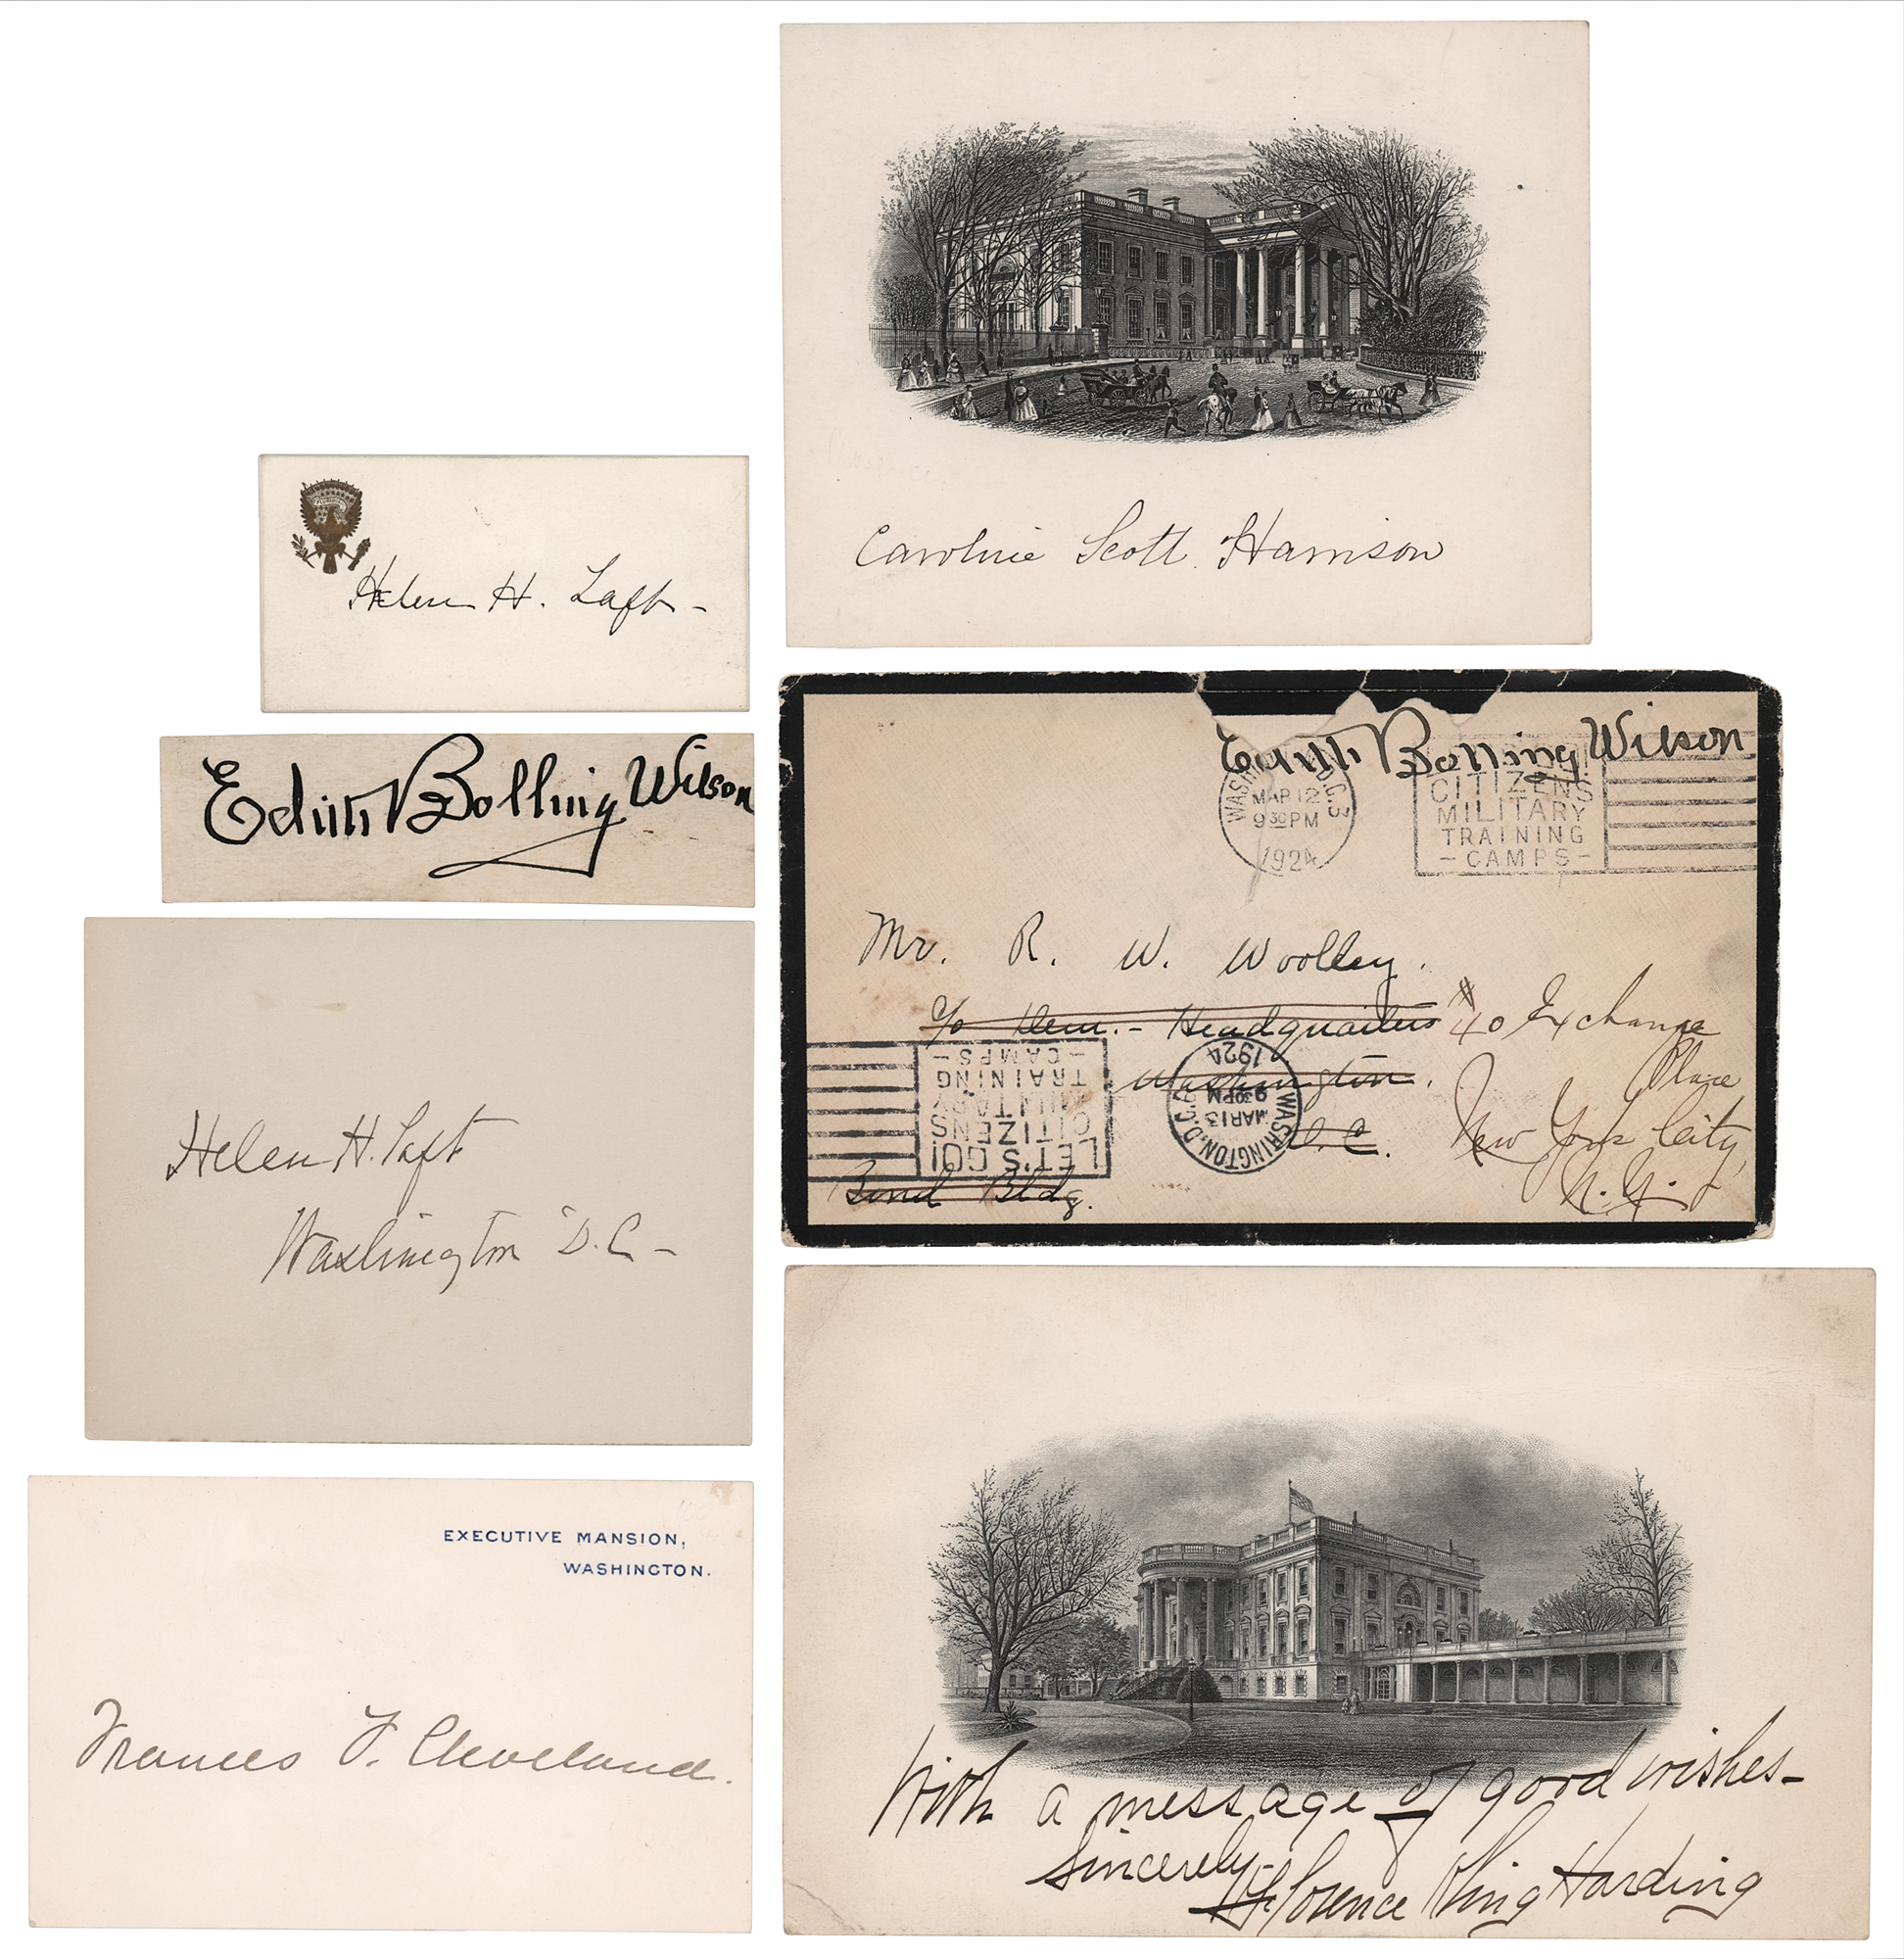 Caroline Scott Harrison
Helen H. Taft -
Edith Bolling Wilson
Edith Bolling Wilson
WASHINGTON, D.C. 3
MAR 12
9 30 PM
1924
CITIZENS
MILITARY
TRAINING
- CAMPS -
Mr. R. W. Woolley.
c/o Dem. - Headquarters
Washington.
D.C.
Bond Bldg.
40 Exchange
Place
New York City,
N.Y.
LET'S GO!
CITIZENS
MILITARY
TRAINING
- CAMPS -
WASHINGTON, D.C.
MAR 13
9 30 PM
1924
Helen H. Taft
Washington D.C. -
EXECUTIVE MANSION,
WASHINGTON.
Frances F. Cleveland.
With a message of good wishes -
Sincerely -
Florence Kling Harding